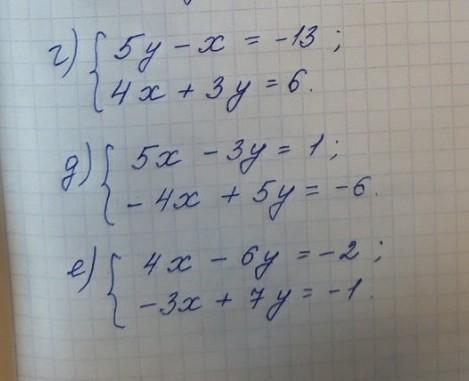 г) { 5y - x = -13 ;
4x + 3y = 6.
д) { 5x - 3y = 1 ;
- 4x + 5y = -6.
е) { 4x - 6y = -2 ;
-3x + 7y = -1.